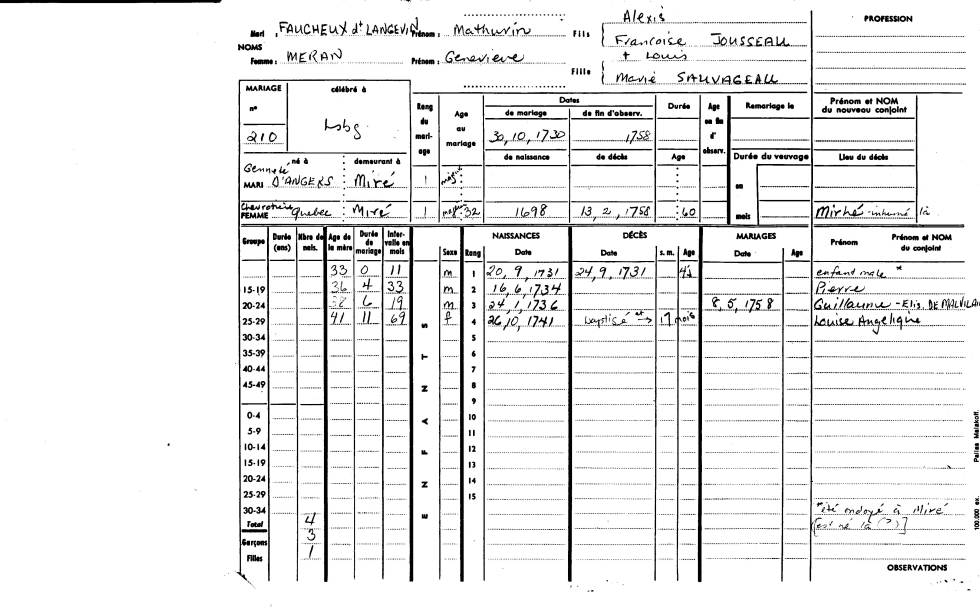 Alexis
PROFESSION
Mari : FAUCHEUX dt LANGEVIN Prénom : Mathurin Fils
Francoise JOUSSEAU
NOMS
+ Louis
Femme : MERAN Prénom : Genevieve
Fille
Marie SAUVAGEAU
MARIAGE célébré à
n° 210 Lsbg
Rang du mari-age
Age au mariage
Dates
de mariage de fin d'observ.
30, 10, 1730 1758
Durée
Age en fin d'observ.
Remariage le
Prénom et NOM du nouveau conjoint
né à demeurant à
de naissance de décès Age
Durée du veuvage
Lieu du décès
MARI D'ANGERS Miré 1
en
FEMME Quebec Miré 1 32 1698 13, 2, 1758 60
mois
inhumé là
Groupe Durée (ans) Nbre de nais. Age de la mère Durée de mariage Inter-valle en mois
ENFANTS
Sexe Rang
NAISSANCES Date
DÉCÈS Date s. m. Age
MARIAGES Date Age
Prénom Prénom et NOM du conjoint
33 0 11 m 1 20, 9, 1731 24, 9, 1731 4j enfant male *
15-19 36 4 33 m 2 16, 6, 1734 Pierre
20-24 38 6 19 m 3 24, 1, 1736 8, 5, 1758 Guillaume - Elis. DE MALVILAIN
25-29 41 11 69 f 4 26, 10, 1741 baptisé et → 17 mois Louise Angelique
30-34 5
35-39 6
40-44 7
45-49 8
9
0-4 10
5-9 11
10-14 12
15-19 13
20-24 14
25-29 15
30-34
*été ondoyé à Miré
Total 4
[est né là (?)]
Garçons 3
Filles 1
OBSERVATIONS
100.000 ex.